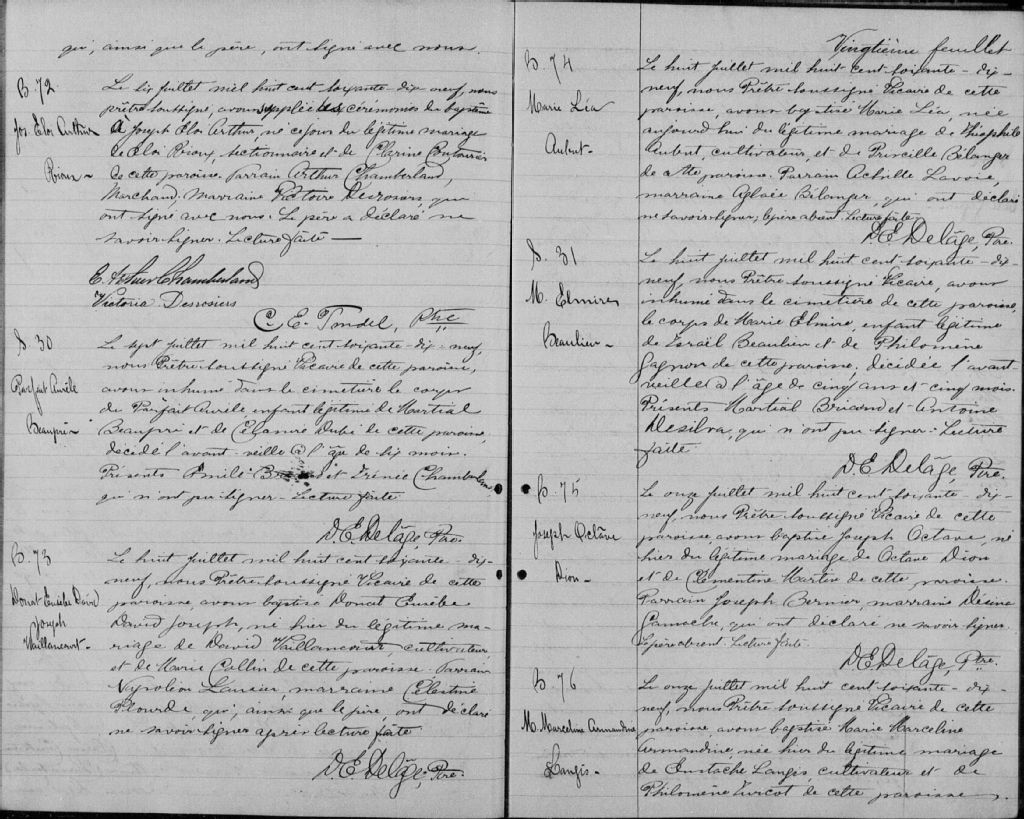 qui, ainsi que le père, ont signé avec nous.
B 72
Jos. Eloi Arthur
Rioux -
Le six juillet mil huit cent soixante-dix-neuf, nous
prêtre soussigné, avons supplié les cérémonies du baptême
à Joseph Eloi Arthur, né ce jour du légitime mariage
de Eloi Rioux, sectionnaire et de
de cette paroisse. Parrain Arthur Chamberland,
Marchand, Marraine Victoire Desrosiers, qui
ont signé avec nous. Le père a déclaré ne
savoir signer. Lecture faite —
E. Arthur Chamberland
Victoria Desrosiers
C. E. Trudel, Ptre
S. 30
Parfait Aurèle
Beaupré -
Le sept juillet mil huit cent soixante-dix-neuf,
nous Prêtre soussigné Vicaire de cette paroisse,
avons inhumé dans le cimetière le corps
de Parfait Aurèle enfant légitime de Martial
Beaupré et de Dubé de cette paroisse,
décédé l'avant-veille @ l'âge de six mois.
Présents Emile et Irénée Chamberland
qui n'ont pu signer. Lecture faite
D. E. Delâge, Ptre.
B. 73
Donat Eusèbe David
Joseph
Vaillancourt -
Le huit juillet mil huit cent soixante-dix-
neuf, nous Prêtre soussigné Vicaire de cette
paroisse, avons baptisé Donat Eusèbe
David Joseph, né hier du légitime ma-
riage de David Vaillancourt cultivateur
et de Marie Collin de cette paroisse. Parrain
Napoléon marraine Célestine
Plourde, qui, ainsi que le père, ont déclaré
ne savoir signer après lecture faite
D. E. Delâge, Ptre.
Vingtième feuillet
B. 74
Marie Léa
Aubut -
Le huit juillet mil huit cent soixante-dix-
neuf, nous Prêtre soussigné Vicaire de cette
paroisse avons baptisé Marie Léa, née
aujourd'hui du légitime mariage de Théophile
Aubut, cultivateur, et de Priscille Bélanger
de cette paroisse. Parrain Achille Lavoie,
marraine Aglaée Bélanger, qui ont déclaré
ne savoir signer; le père absent. Lecture faite -
D. E. Delâge, Ptre.
S. 31
M. Elmire
Beaulieu -
Le huit juillet mil huit cent soixante-dix-
neuf, nous Prêtre soussigné Vicaire, avons
inhumé dans le cimetière de cette paroisse,
le corps de Marie Elmire, enfant légitime
de Israël Beaulieu et de Philomène
Gagnon de cette paroisse, décédée l'avant
veille @ l'âge de cinq ans et cinq mois.
Présents Martial Briand et Antoine
Desilva, qui n'ont pu signer. Lecture
faite
D. E. Delâge, Ptre.
B. 75
Joseph Octave
Dion -
Le onze juillet mil huit cent soixante-dix-
neuf, nous Prêtre soussigné Vicaire de cette
paroisse, avons baptisé Joseph Octave, né
hier du légitime mariage de Octave Dion
et de Clémentine Martin de cette paroisse.
Parrain Joseph Bernier, marraine Désine
Gamache, qui ont déclaré ne savoir signer.
Le père absent. Lecture faite.
D. E. Delâge, Ptre.
B. 76
M. Marceline Armandine
Langis -
Le onze juillet mil huit cent soixante-dix-
neuf, nous Prêtre soussigné Vicaire de cette
paroisse avons baptisé Marie Marceline
Armandine née hier du légitime mariage
de Eustache Langis, cultivateur et de
Philomène Turcot de cette paroisse.